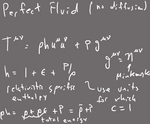 Perfect Fluid (no diffusion)
T^{μν} = ρhu^μu^ν + Pg^{μν}
g^{μν} = η^{μν}
Minkowski
h = 1 + ε + P/ρ
relativistic specific enthalpy
~ use units for which c = 1
ρh = ρ + ρε + P = ρ̂ + P
total energy